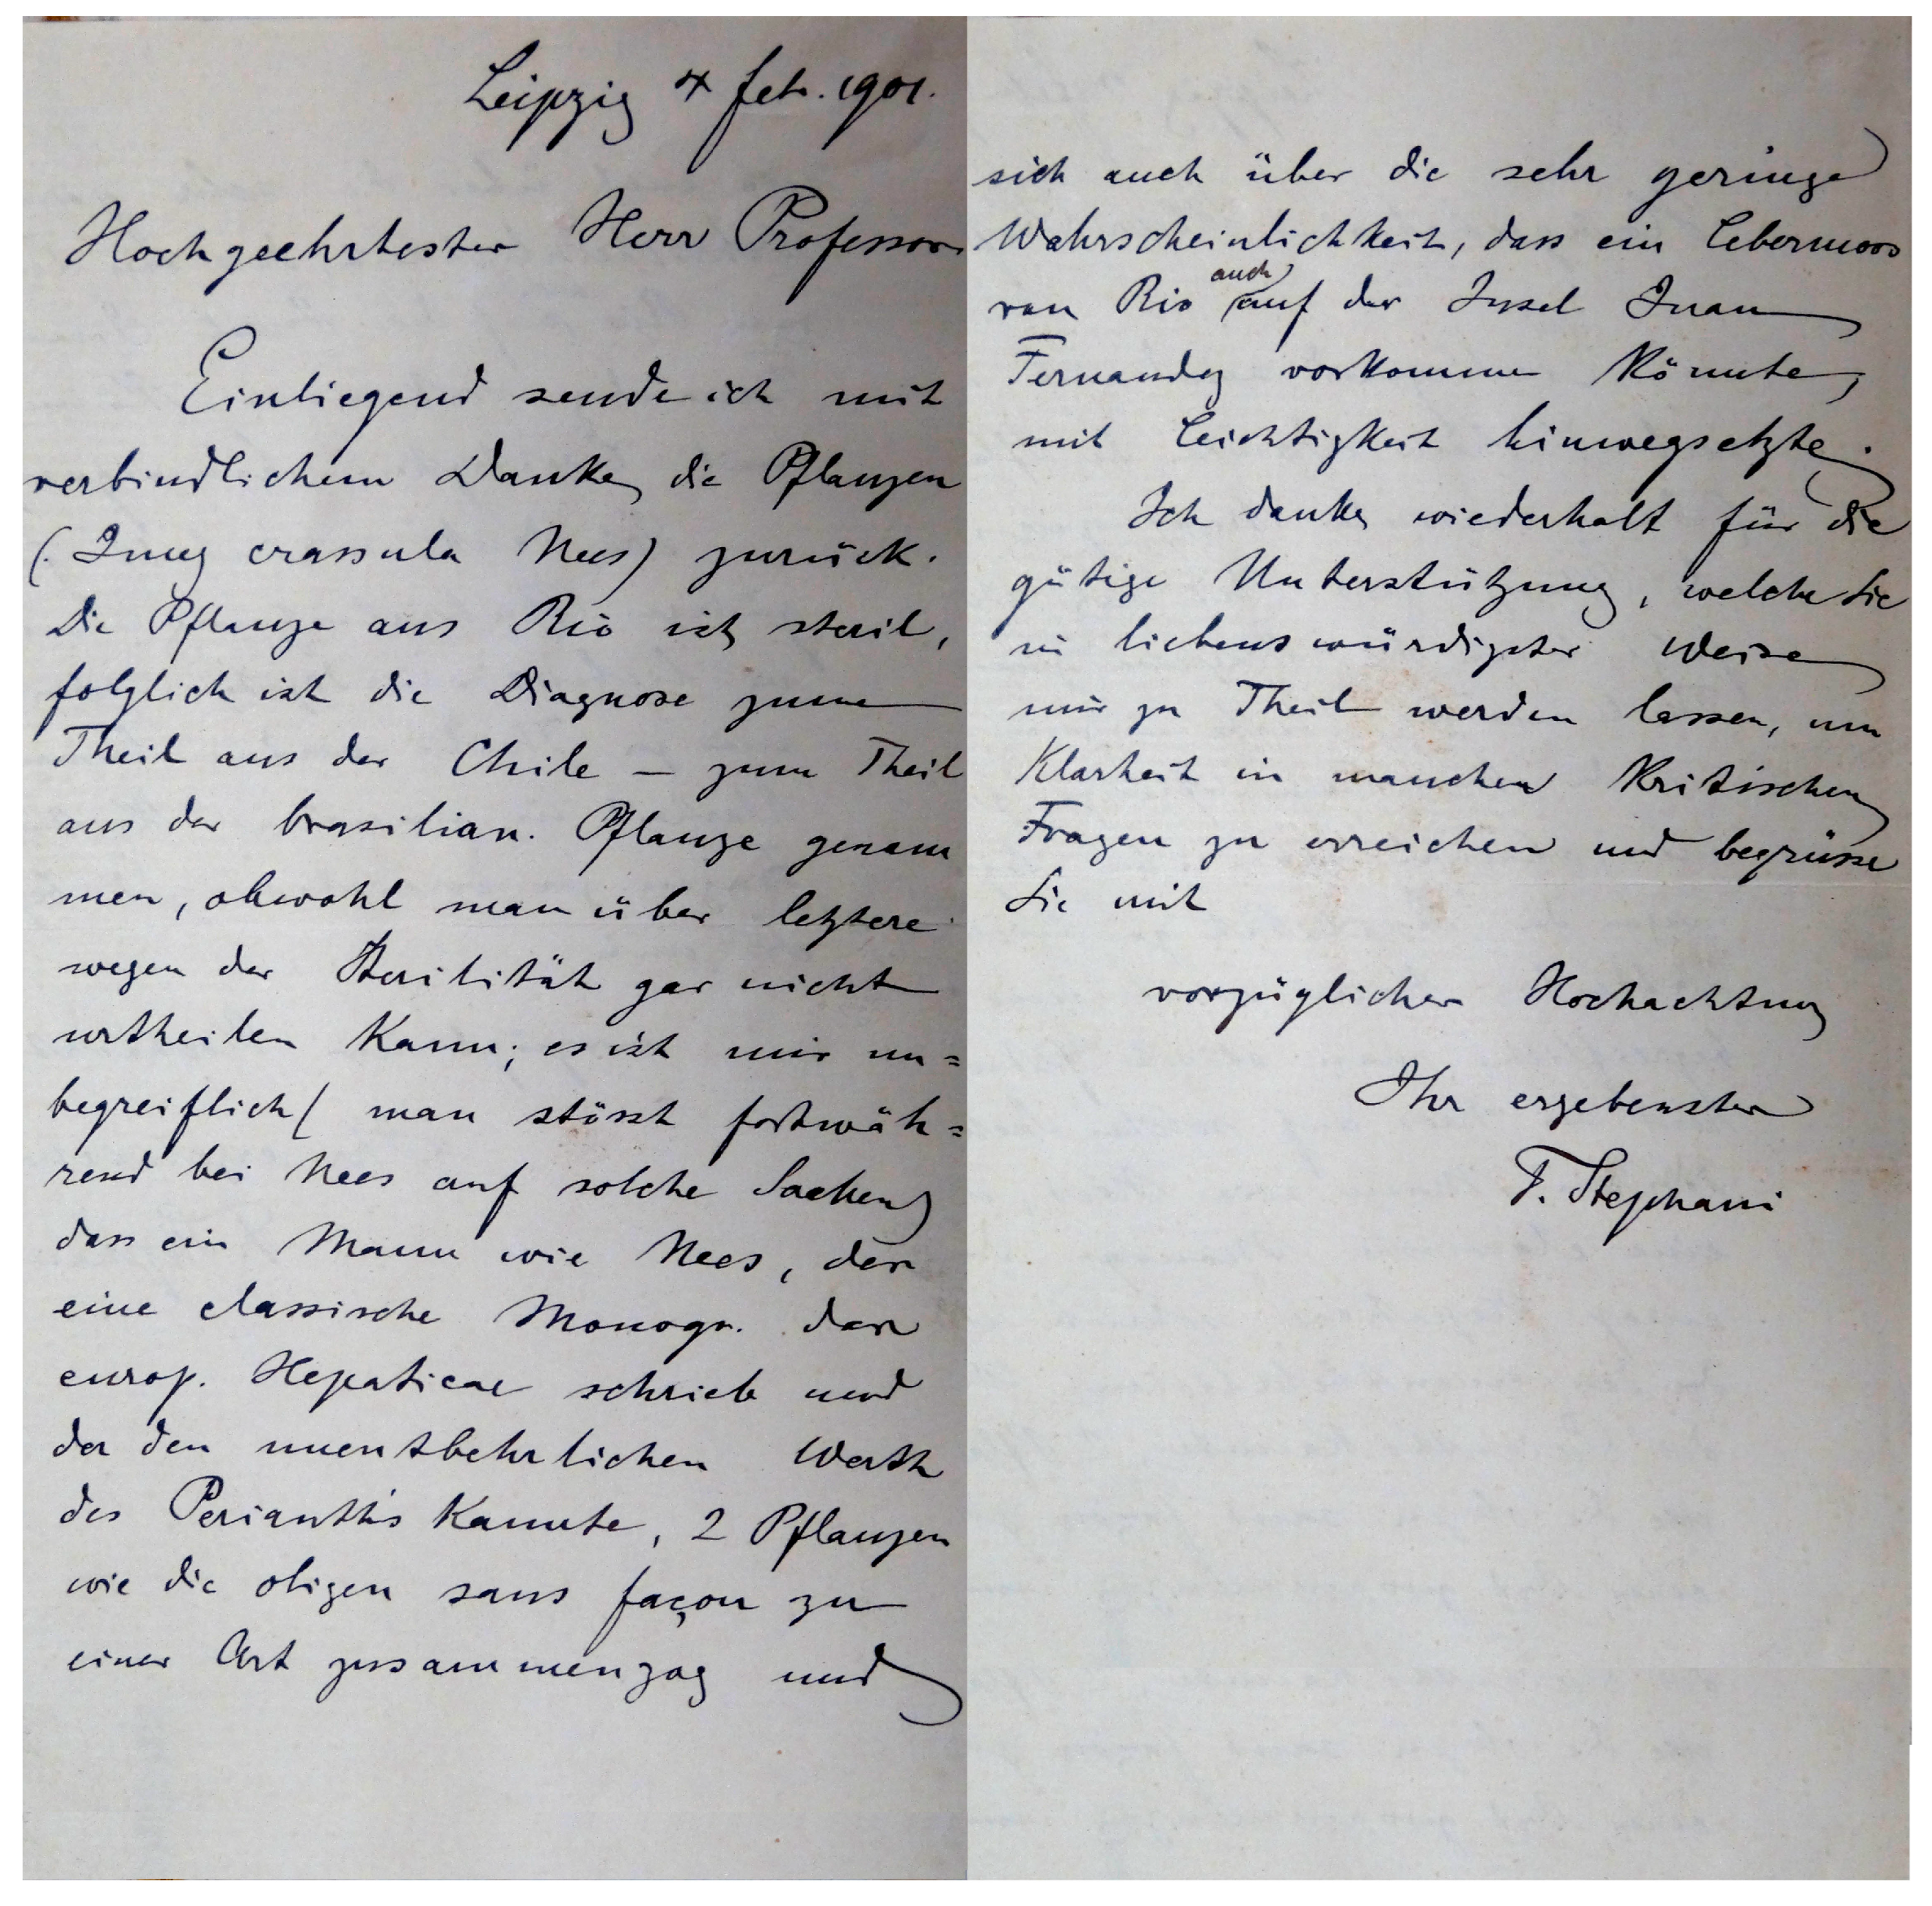 Leipzig 4 feb. 1901.
Hochgeehrtester Herr Professor
Einliegend sende ich mit
verbindlichem Danke die Pflanzen
(. Jung crassula Nees) zurück.
Die Pflanze aus Rio ist steril,
folglich ist die Diagnose zum
Theil aus der Chile – zum Theil
aus der brasilian. Pflanze genom
men, obwohl man über letztere
wegen der Sterilität gar nicht
urtheilen kann; es ist mir un=
begreiflich ( man stösst fortwäh=
rend bei Nees auf solche Sachen)
dass ein Mann wie Nees, der
eine classische Monogr. der
europ. Hepaticae schrieb und
der den unentbehrlichen Werth
des Perianth's kannte, 2 Pflanzen
wie die obigen sans façon zu
einer Art zusammenzog und
sich auch über die sehr geringe
Wahrscheinlichkeit, dass ein Lebermoos
von Rio auch auf der Insel Juan
Fernandez vorkommen könnte,
mit Leichtigkeit hinwegsetzte.
Ich danke wiederholt für die
gütige Unterstützung, welche Sie
in liebenswürdigster Weise
mir zu Theil werden lassen, um
Klarheit in manchen kritischen
Fragen zu erreichen und begrüsse
Sie mit
vorzüglicher Hochachtung
Ihr ergebenster
F. Stephani